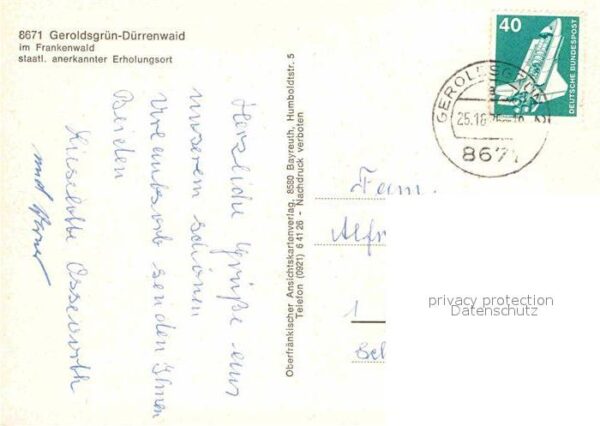 8671 Geroldsgrün-Dürrenwaid
im Frankenwald
staatl. anerkannter Erholungsort
Herzliche Grüße aus
unserem schönen
Urlaubsort senden Ihnen
Beiden
Liselotte
und
Oberfränkischer Ansichtskartenverlag, 8580 Bayreuth, Humboldtstr. 5
Telefon (0921) 6 41 26 - Nachdruck verboten
40
DEUTSCHE BUNDESPOST
GEROLDSGRÜN
8671
Fam.
Alfr
1
Sch
privacy protection
Datenschutz